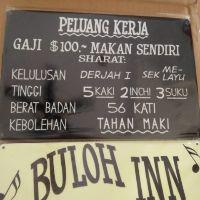 PELUANG KERJA
GAJI $100,- MAKAN SENDIRI
SHARAT:
KELULUSAN DERJAH I SEK MELAYU
TINGGI 5 KAKI 2 INCHI 3 SUKU
BERAT BADAN 56 KATI
KEBOLEHAN TAHAN MAKI
BULOH INN